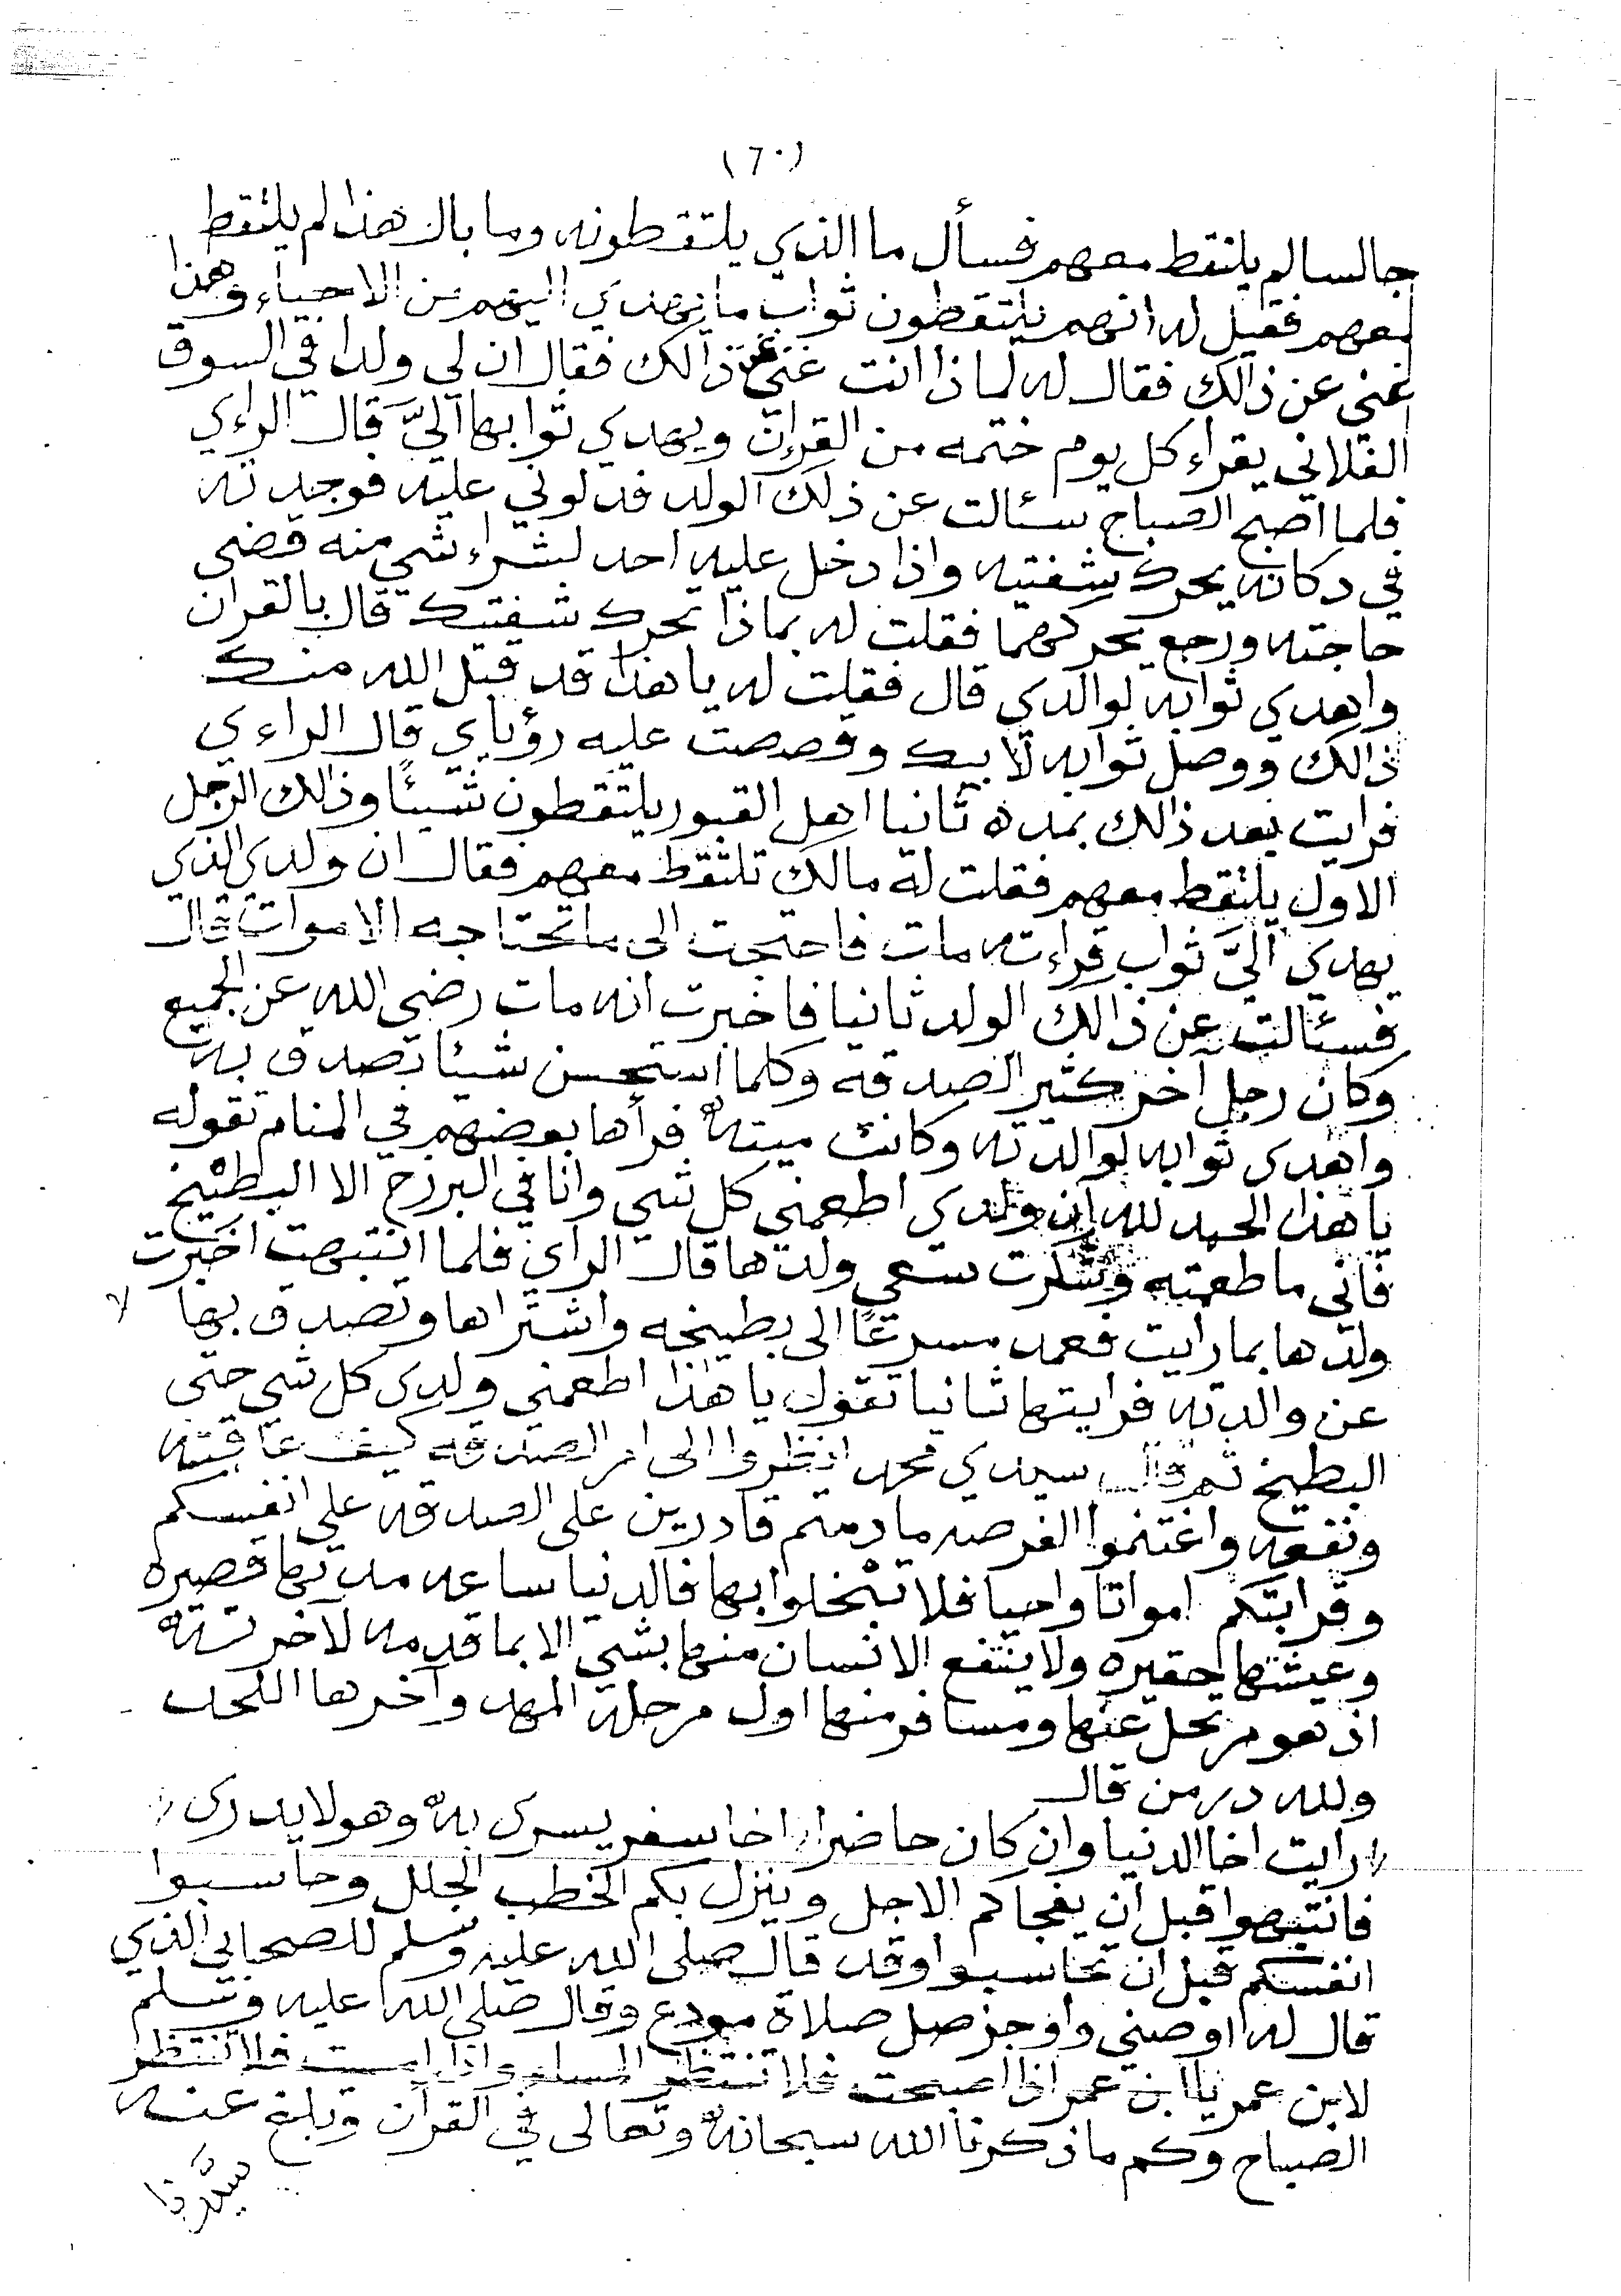 (٦٠)
جالسا لم يلتقط معهم فسأل ما الذي يلتقطونه وما بال هذا لم يلتقط
معهم فقيل له انهم يلتقطون ثواب ما يهدي اليهم من الاحياء وهذا
غني عن ذالك فقال له لماذا انت غني عن ذالك فقال ان لي ولدا في السوق
الفلاني يقراء كل يوم ختمه من القران ويهدي ثوابها اليَّ قال الراءي
فلما اصبح الصباح سئالت عن ذلك الولد فدلوني عليه فوجدته
في دكانه يحرك شفتيه واذا دخل عليه احد لشراء شي منه قضى
حاجته ورجع يحركهما فقلت له بماذا تحرك شفتيك قال بالقران
واهدي ثوابه لوالدي قال فقلت له يا هذا قد قبل الله منك
ذالك ووصل ثوابه لابيك وقصصت عليه رؤياي قال الراءي
فرايت بعد ذالك بمده ثانيا اهل القبور يلتقطون شيئًا وذالك الرجل
الاول يلتقط معهم فقلت له مالك تلتقط معهم فقال ان ولدي الذي
يهدي اليَّ ثواب قراءته مات فاحتجت الى ما تحتاجه الاموات قال
فسئالت عن ذالك الولد ثانيا فاخبرت انه مات رضي الله عن الجميع
وكان رجل آخر كثير الصدقه وكلما استحسن شيئا تصدق به
واهدى ثوابه لوالدته وكانت ميته فرأها بعضهم في المنام تقوله
يا هذا الحمد لله ان ولدي اطعمني كل شي وانا في البرزخ الا البطيخ
فاني ما طعمته وشكرت سعي ولدها قال الراي فلما انتبهت اخبرت
ولدها بما رايت فعمد مسرعًا الى بطيخه واشتراها وتصدق بها
عن والدته فرايتها ثانيا تقول يا هذا اطعمني ولدي كل شي حتى
البطيخ ثم قال سيدي محمد انظروا الى امر الصدقه كيف عاقبته
ونفعه واغتنموا الفرصه مادمتم قادرين على الصدقه على انفسكم
وقرابتكم امواتا واحيا فلا تبخلوا بها فالدنيا ساعه مدتها قصيره
وعيشتها حقيره ولا ينتفع الانسان منها بشي الا بما قدمه لآخرته
اذ هو مرتحل عنها ومسافر منها اول مرحلة المهد وآخرها اللحد
ولله در من قال
رايت اخا الدنيا وان كان حاضرا اخا سفر يسرى به وهو لا يدرى
فانتبهوا قبل ان يفجاكم الاجل وينزل بكم الخطب الجلل وحاسبوا
انفسكم قبل ان تحاسبوا وقد قال صلى الله عليه وسلم للصحابي الذي
قال له اوصني واوجز صل صلاة مودع وقال صلى الله عليه وسلم
لابن عمر يا ابن عمر اذا اصبحت فلا تنتظر المساء واذا امسيت فلا تنتظر
الصباح وكم ما ذكرنا الله سبحانه وتعالى في القرآن وبلغ عنه
سيّدنا